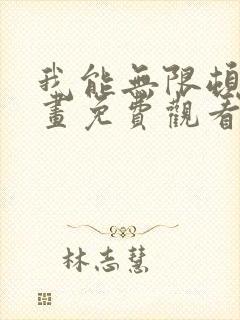 我能無限頓
畫免費觀看
林志慧